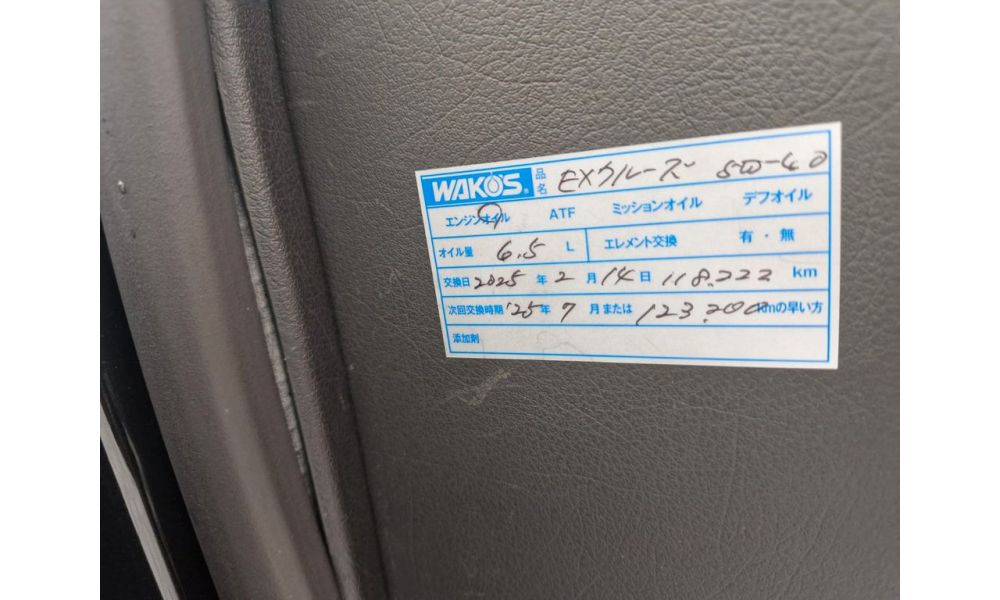 WAKO'S 品名 EXクルーズ 5W-40
エンジンオイル ATF ミッションオイル デフオイル
オイル量 6.5 L エレメント交換 有・無
交換日 2025 年 2 月 14 日 118.222 km
次回交換時期 '25 年 7 月または 123.200 kmの早い方
添加剤